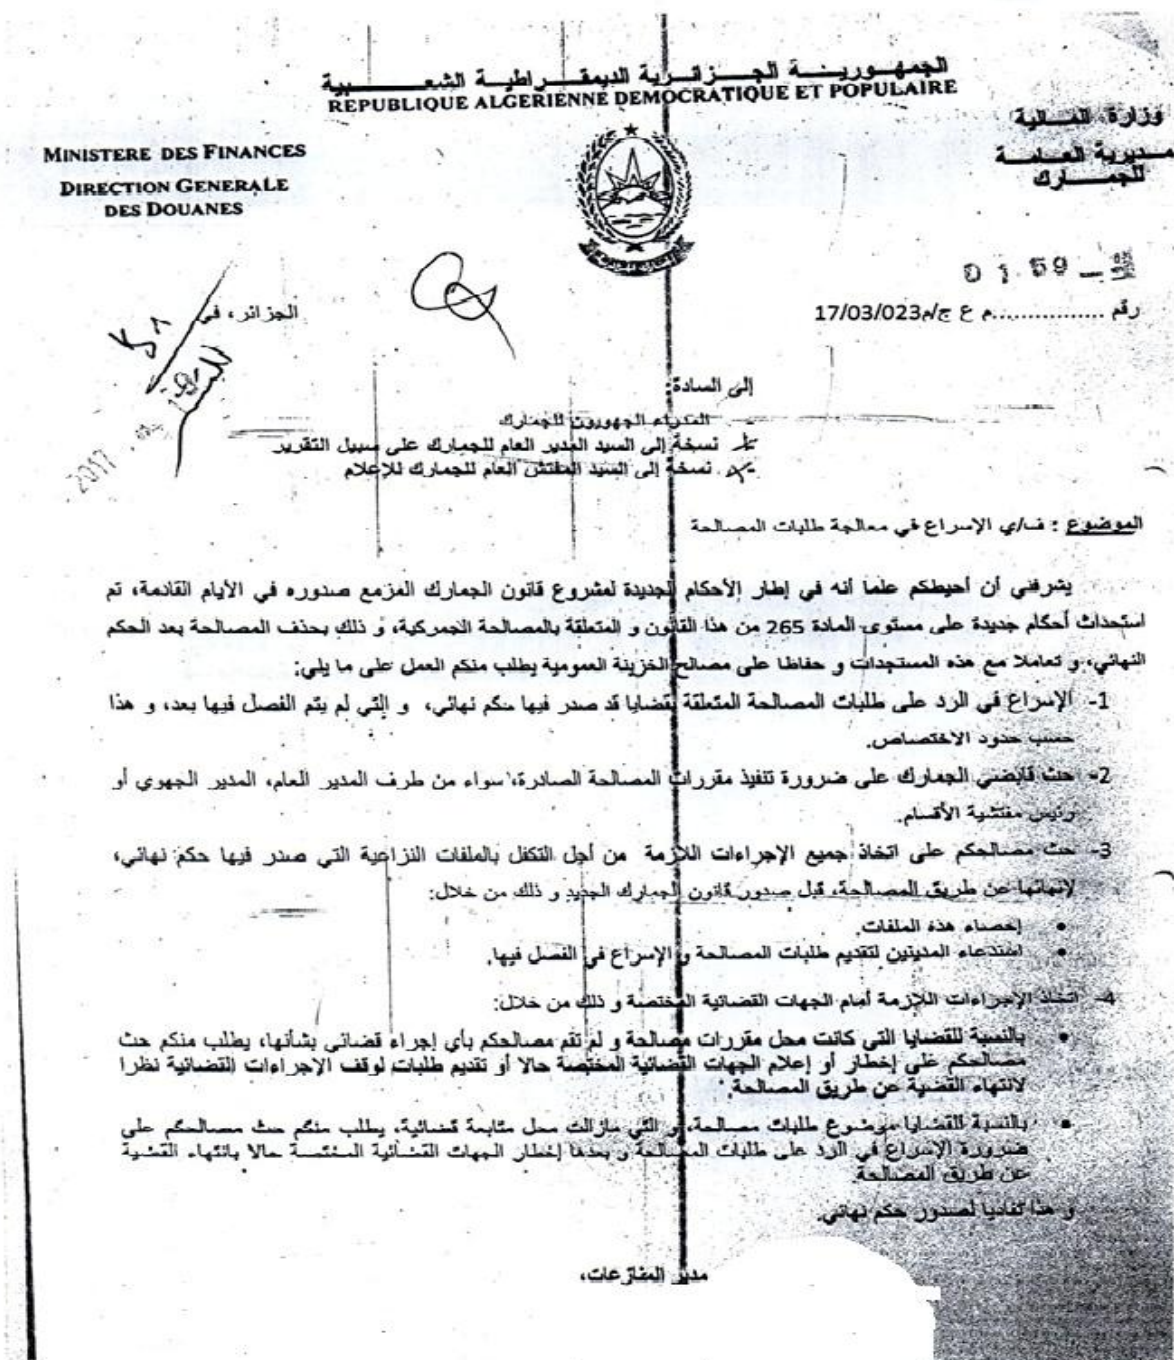 الجمهوريـــة الجـــزائـرية الديمقـــراطيـة الشعـــــبية
REPUBLIQUE ALGERIENNE DEMOCRATIQUE ET POPULAIRE
وزارة المـالية
MINISTERE DES FINANCES
مـديرية العـامـة
للجمـــارك
DIRECTION GENERALE
DES DOUANES
0159
رقم ................م ع ج/م17/03/023
الجزائر، في
2017
إلى السادة:
- المدراء الجهويون للجمارك
- نسخة إلى السيد المدير العام للجمارك على سبيل التقرير
- نسخة إلى السيد المفتش العام للجمارك للإعلام
الموضوع : ف/ي الإسراع في معالجة طلبات المصالحة
يشرفني أن أحيطكم علما أنه في إطار الأحكام الجديدة لمشروع قانون الجمارك المزمع صدوره في الأيام القادمة، تم
استحداث أحكام جديدة على مستوى المادة 265 من هذا القانون و المتعلقة بالمصالحة الجمركية، و ذلك بحذف المصالحة بعد الحكم
النهائي، و تعاملا مع هذه المستجدات و حفاظا على مصالح الخزينة العمومية يطلب منكم العمل على ما يلي:
1- الإسراع في الرد على طلبات المصالحة المتعلقة بقضايا قد صدر فيها حكم نهائي، و التي لم يتم الفصل فيها بعد، و هذا
حسب حدود الاختصاص.
2- حث قابضي الجمارك على ضرورة تنفيذ مقررات المصالحة الصادرة، سواء من طرف المدير العام، المدير الجهوي أو
رئيس مفتشية الأقسام.
3- حث مصالحكم على اتخاذ جميع الإجراءات اللازمة من أجل التكفل بالملفات النزاعية التي صدر فيها حكم نهائي،
لإنهائها عن طريق المصالحة، قبل صدور قانون الجمارك الجديد و ذلك من خلال:
• إحصاء هذه الملفات.
• استدعاء المدينين لتقديم طلبات المصالحة و الإسراع في الفصل فيها.
4- اتخاذ الإجراءات اللازمة أمام الجهات القضائية المختصة و ذلك من خلال:
• بالنسبة للقضايا التي كانت محل مقررات مصالحة و لم تقم مصالحكم بأي إجراء قضائي بشأنها، يطلب منكم حث
مصالحكم على إخطار أو إعلام الجهات القضائية المختصة حالا أو تقديم طلبات لوقف الإجراءات القضائية نظرا
لانتهاء القضية عن طريق المصالحة.
• بالنسبة للقضايا موضوع طلبات مصالحة، و التي مازالت محل متابعة قضائية، يطلب منكم حث مصالحكم على
ضرورة الإسراع في الرد على طلبات المصالحة و بعدها إخطار الجهات القضائية المختصة حالا بانتهاء القضية
عن طريق المصالحة.
و هذا تفاديا لصدور حكم نهائي.
مدير المنازعات،